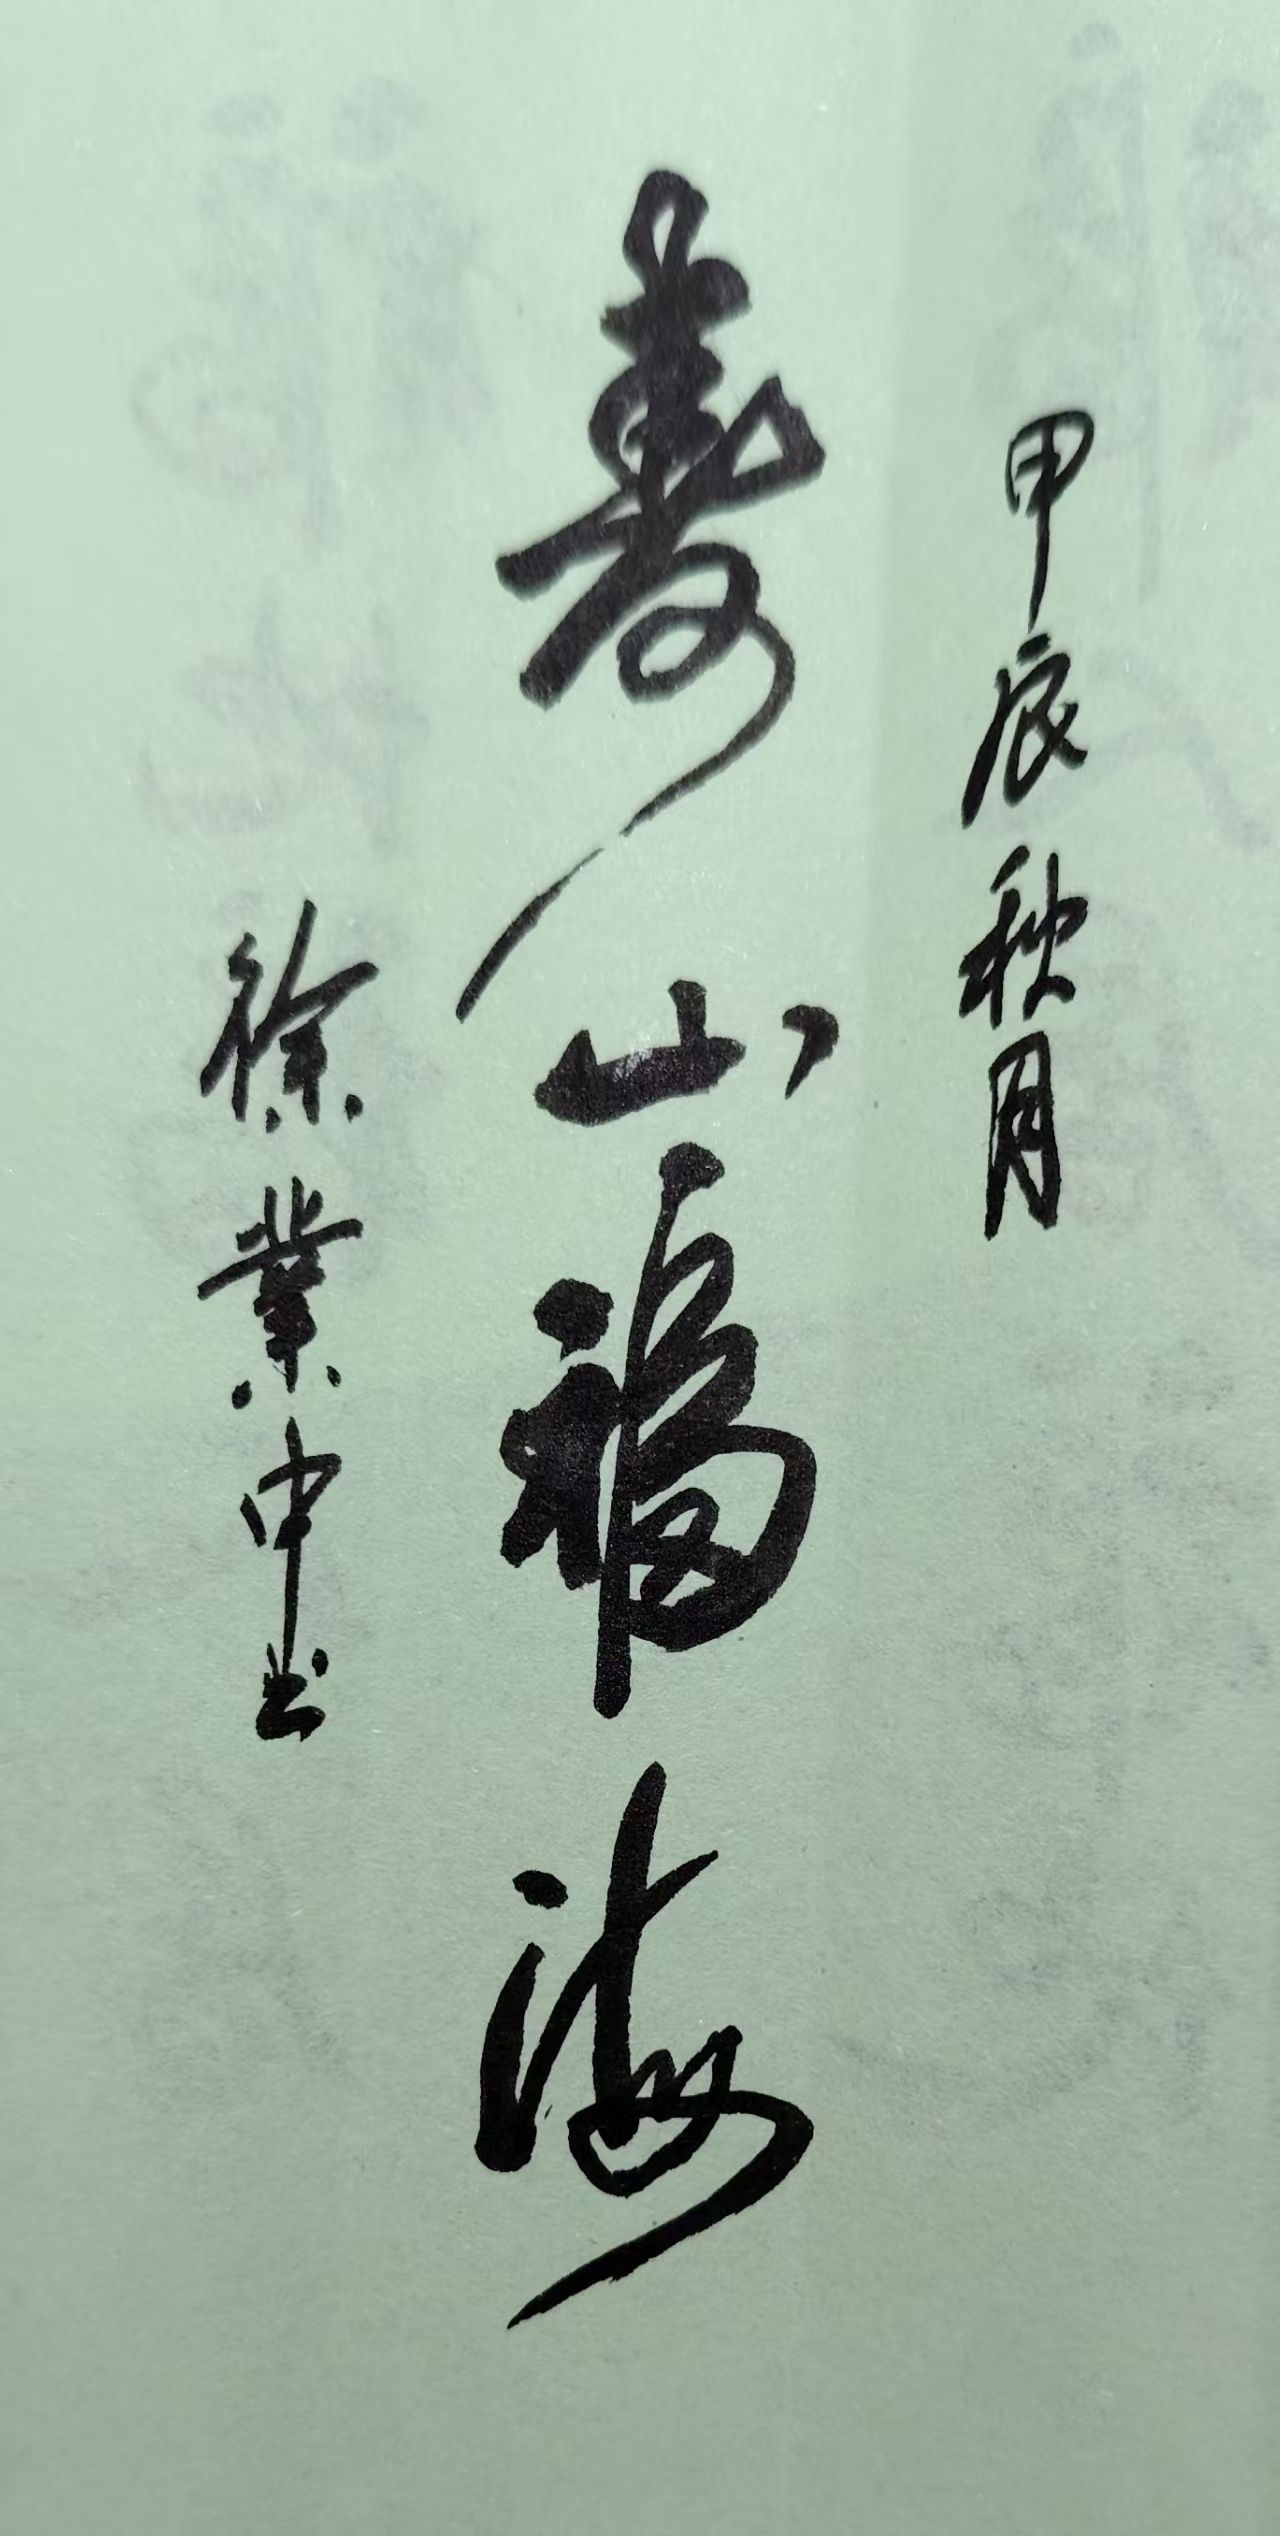 甲辰秋月
寿山福海
徐業中书